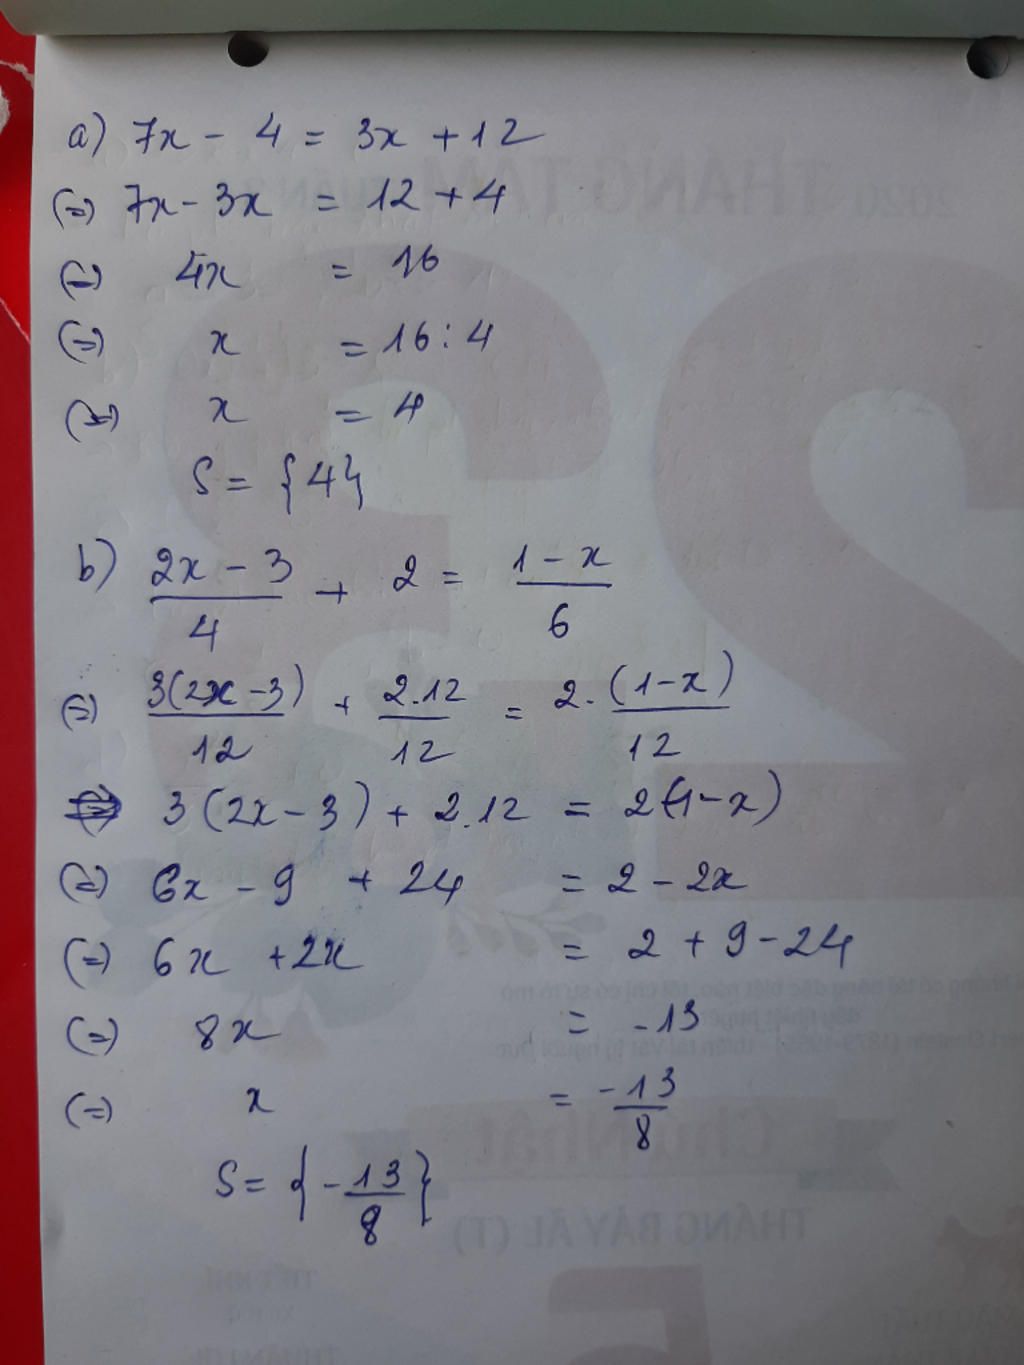 a) 7x - 4 = 3x + 12
(=) 7x - 3x = 12 + 4
(=) 4x = 16
(=) x = 16 : 4
(=) x = 4
S = {4}
b) \frac{2x - 3}{4} + 2 = \frac{1 - x}{6}
(=) \frac{3(2x - 3)}{12} + \frac{2.12}{12} = 2. \frac{(1 - x)}{12}
3(2x - 3) + 2.12 = 2(1 - x)
(=) 6x - 9 + 24 = 2 - 2x
(=) 6x + 2x = 2 + 9 - 24
(=) 8x = -13
(=) x = \frac{-13}{8}
S = {-\frac{13}{8}}
2020 THÁNG TÁM
23
Chủ Nhật
THÁNG BẢY ÂL (T)
TIẾT KHÍ